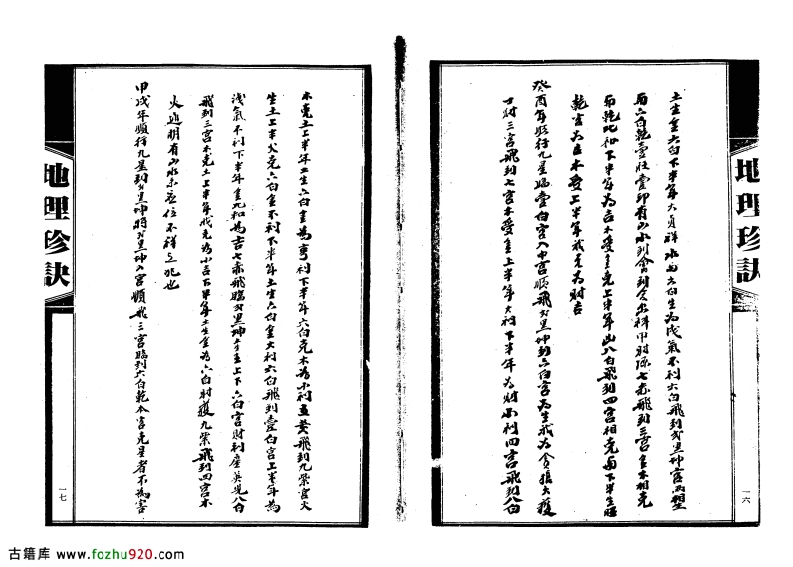 地理珍訣
一六
土生金六白下半年大貞祥水雨六白生為洩氣不利六白飛到弍黑坤宮两相生
雨六白乾壹收壹卯有山水到會到令出祥甲財源七赤飛到三宮金木相克
雨乾比和下半年為吉木受金克上半年出八白飛到四宮相克雨下半生賜
乾宮為巨木受上半年戒生為財吉
癸酉年順行九星臨壹白宮入中宮順飛弍黑坤到六白宮為生我為貪狼大發
丁財三宮飛到七宮木受金上半年大利下半年為財小利四宮飛到八白
木克土上半年土生六白金為亨利下半年六白克木為小利五黄飛到九紫宮火
生土上半火克六白金不利下半年土生六白金大利六白飛到壹白宮上半年為
洩氣不利下半年金比和為吉七赤飛臨弍黑坤土生金上下六白宮財利産英児八白
飛到三宮木克土上半年我克為小吉下半年土生金為六白財發九紫飛到四宮木
火通明有山水未应位不祥之兆也
甲戌年順行九星到弍黑坤将弍黑坤入宮順飛三宮臨到六白乾本宮克星者不為害
地理珍訣
一七
古籍库 www.fozhu920.com